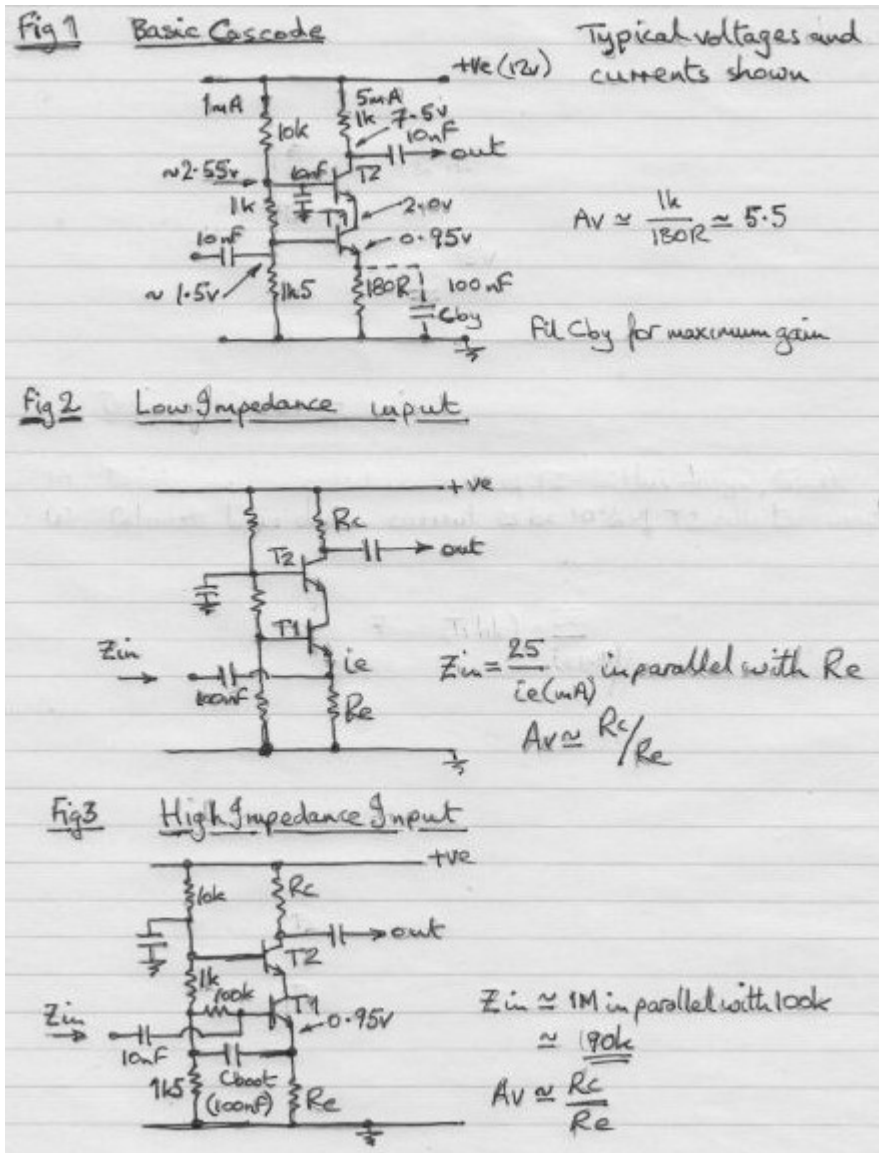 Fig 1 Basic Cascode
Typical voltages and
currents shown
+ve (12v)
1mA
5mA
1k
7.5v
10k
10nF
out
~2.55v
10nF
T2
1k
T1
2.0v
10nF
0.95v
Av ≃ 1k/180R ≃ 5.5
~ 1.5v
1k5
180R
100nF
Cby
Fit Cby for maximum gain
Fig 2 Low Impedance input
+ve
Rc
out
T2
T1
Zin
ie
100nF
Re
Zin = 25/ie(mA) in parallel with Re
Av ≃ Rc/Re
Fig 3 High Impedance Input
+ve
10k
Rc
out
T2
1k
100k
T1
Zin
0.95v
10nF
Cboot
(100nF)
1k5
Re
Zin ≃ 1M in parallel with 100k
≃ 90k
Av ≃ Rc/Re